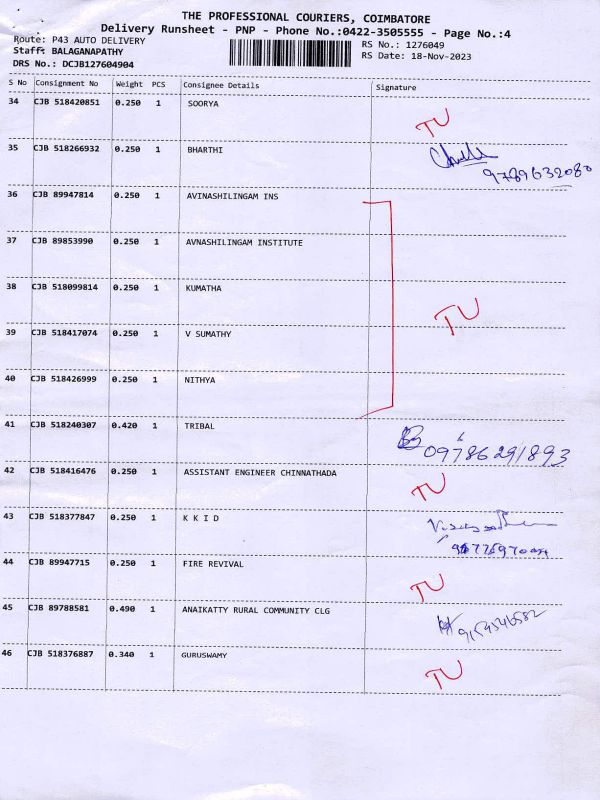 THE PROFESSIONAL COURIERS, COIMBATORE
Delivery Runsheet - PNP - Phone No.:0422-3505555 - Page No.:4
Route: P43 AUTO DELIVERY RS No.: 1276049
Staff: BALAGANAPATHY RS Date: 18-Nov-2023
DRS No.: DCJB127604904
S No Consignment No Weight PCS Consignee Details Signature
34 CJB 518420851 0.250 1 SOORYA TU
35 CJB 518266932 0.250 1 BHARTHI
9789632080
36 CJB 89947814 0.250 1 AVINASHILINGAM INS
37 CJB 89853990 0.250 1 AVNASHILINGAM INSTITUTE
38 CJB 518099814 0.250 1 KUMATHA TU
39 CJB 518417074 0.250 1 V SUMATHY
40 CJB 518426999 0.250 1 NITHYA
41 CJB 518240307 0.420 1 TRIBAL
09786291893
42 CJB 518416476 0.250 1 ASSISTANT ENGINEER CHINNATHADA TU
43 CJB 518377847 0.250 1 K K I D
44 CJB 89947715 0.250 1 FIRE REVIVAL TU
45 CJB 89788581 0.490 1 ANAIKATTY RURAL COMMUNITY CLG
46 CJB 518376887 0.340 1 GURUSWAMY TU